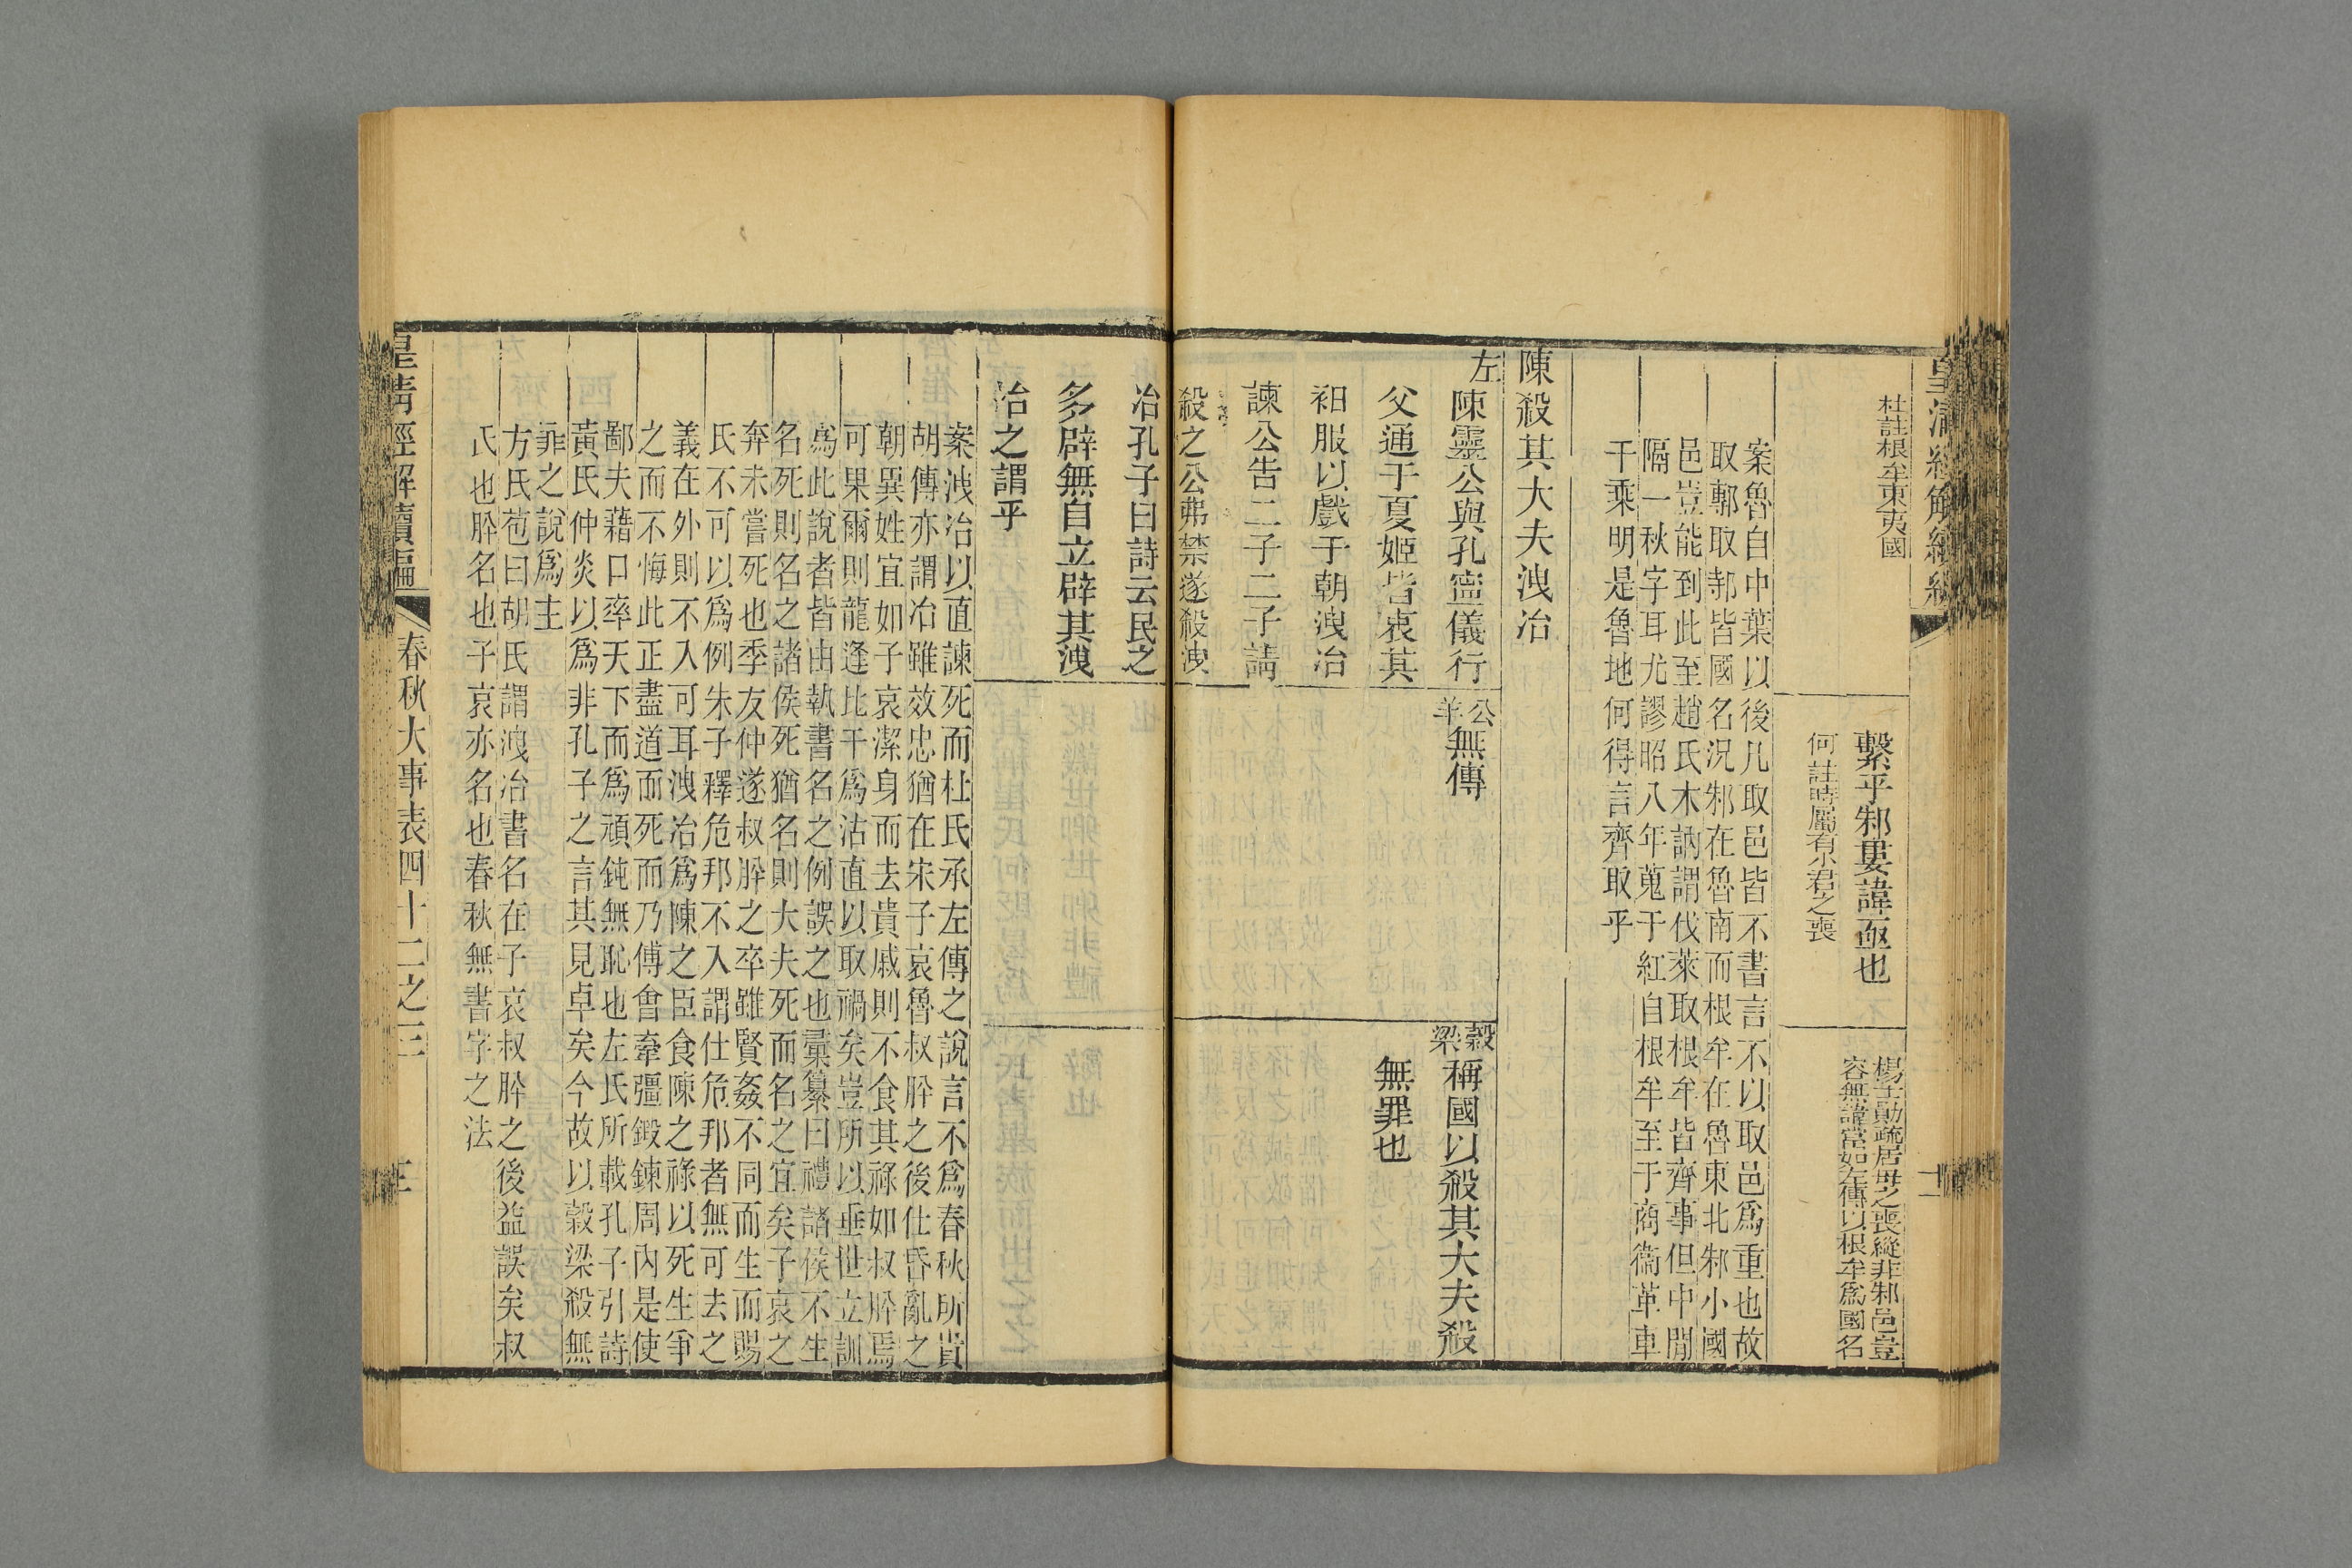 杜註根牟東夷國
繫乎邾婁諱亟也
何註時屬有小君之喪
楊士勛疏居母之喪縱非邾邑豈
容無諱當如左傳以根牟爲國名
案魯自中葉以後凡取邑皆不書言不以取邑爲重也故
取鄟取邿皆國名況邾在魯南而根牟在魯東北邾小國
邑豈能到此至趙氏木訥謂伐萊取根牟皆齊事但中閒
隔一秋字耳尤謬昭八年蒐于紅自根牟至于商衞革車
千乘明是魯地何得言齊取乎
陳殺其大夫洩冶
左
陳靈公與孔寍儀行
父通于夏姬皆衷其
衵服以戲于朝洩冶
諫公告二子二子請
殺之公弗禁遂殺洩
公羊
無傳
穀梁
稱國以殺其大夫殺
無罪也
冶孔子曰詩云民之
多辟無自立辟其洩
冶之謂乎
案洩冶以直諫死而杜氏承左傳之說言不爲春秋所貴
胡傳亦謂冶雖效忠猶在宋子哀魯叔肸之後仕昏亂之
朝異姓宜如子哀潔身而去貴戚則不食其祿如叔肸焉
可果爾則龍逢比干爲沽直以取禍矣豈所以垂世立訓
爲此說者皆由執書名之例誤之也彙纂曰禮諸侯不生
名死則名之諸侯死猶名則大夫死而名之宜矣子哀之
奔未嘗死也季友仲遂叔肸之卒雖賢姦不同而生而賜
氏不可以爲例朱子釋危邦不入謂仕危邦者無可去之
義在外則不入可耳洩冶爲陳之臣食陳之祿以死生爭
之而不悔此正盡道而死而乃傅會牽彊鍛鍊周內是使
鄙夫藉口率天下而爲頑鈍無恥也左氏所載孔子引詩
黃氏仲炎以爲非孔子之言其見卓矣今故以穀梁殺無
辠之說爲主
方氏苞曰胡氏謂洩冶書名在子哀叔肸之後益誤矣叔
氏也肸名也子哀亦名也春秋無書字之法
皇清經解續編
春秋大事表四十二之三
三